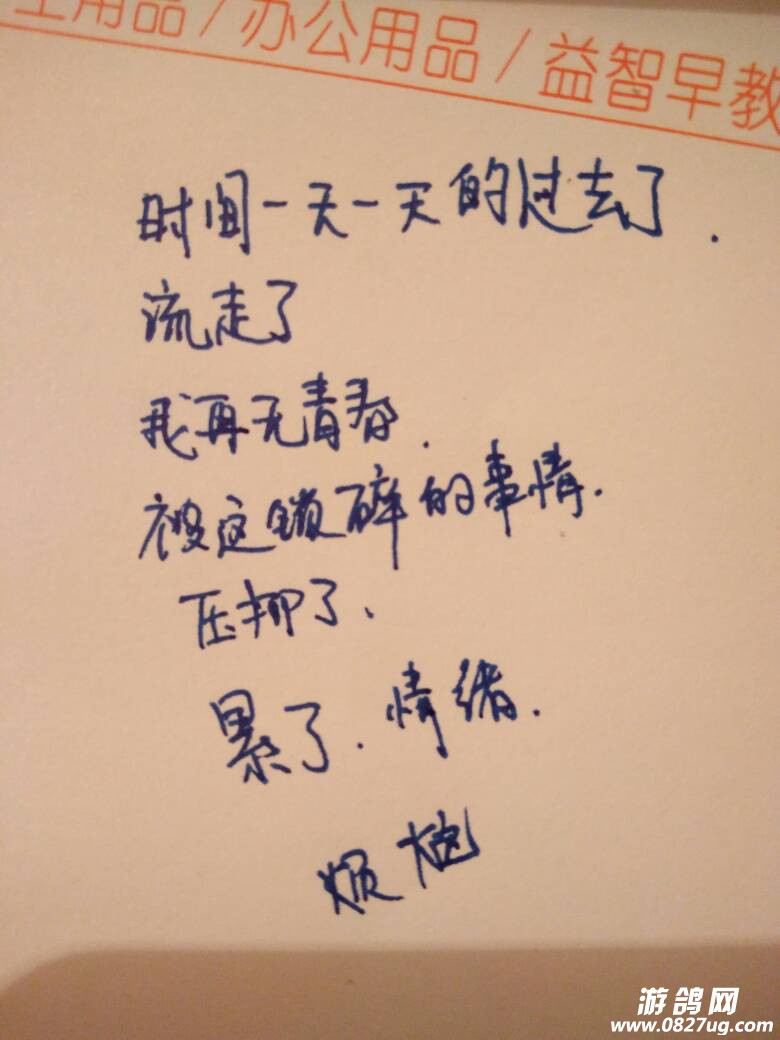 用品/办公用品/益智早教
时间一天一天的过去了.
流走了
我再无青春.
被这锁碎的事情.
压抑了、
累了.情绪.
烦恼
游鸽网
www.0827ug.com